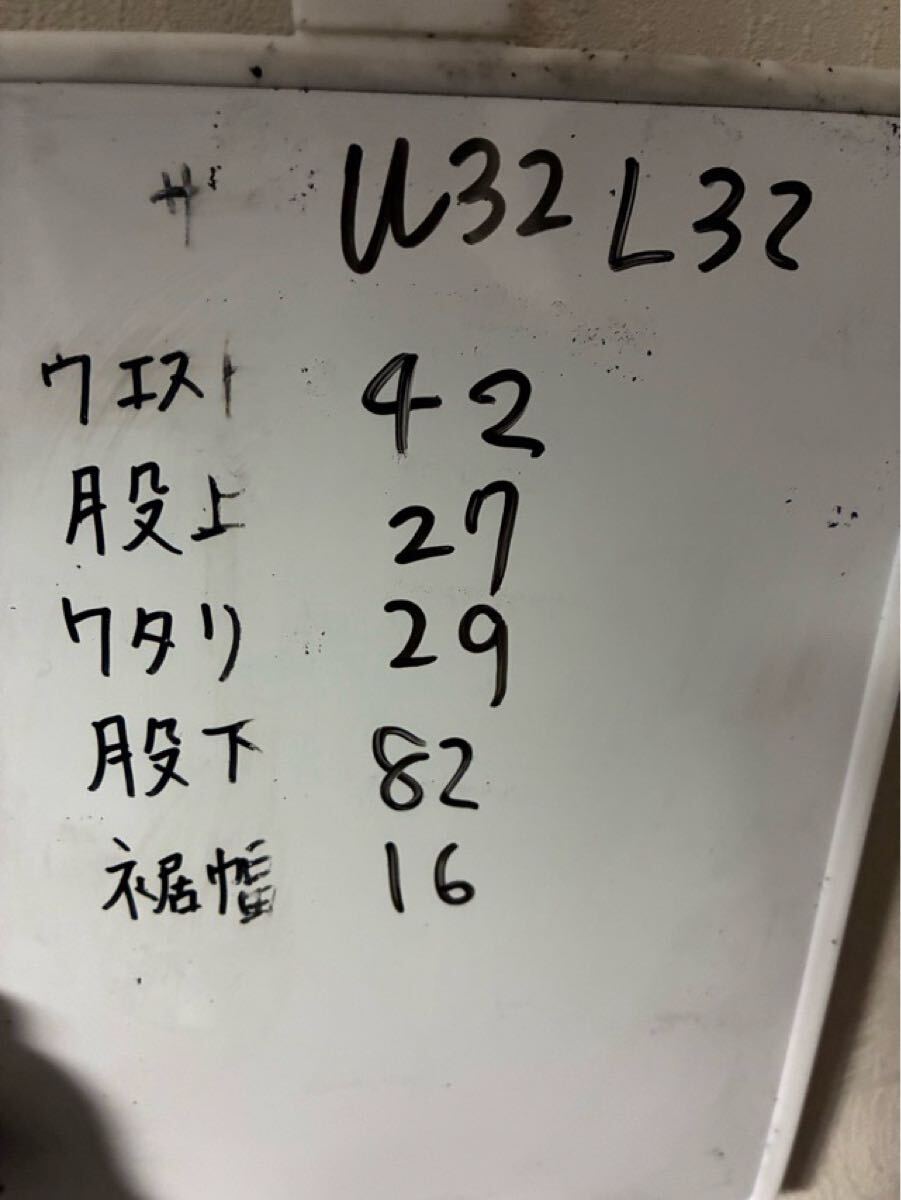 サ W32 L32
ウエスト 42
股上 27
ワタリ 29
股下 82
裾幅 16